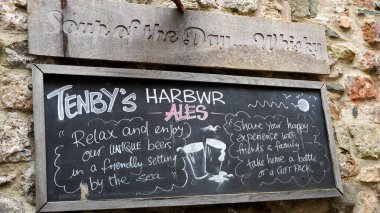 Soup of the Day... Whisky
TENBY'S HARBWR
ALES
"Relax and enjoy
our UNIQUE beers
in a friendly setting
by the sea"
"Share your happy
experience with
friends & family
take home a bottle
or a GIFT PACK